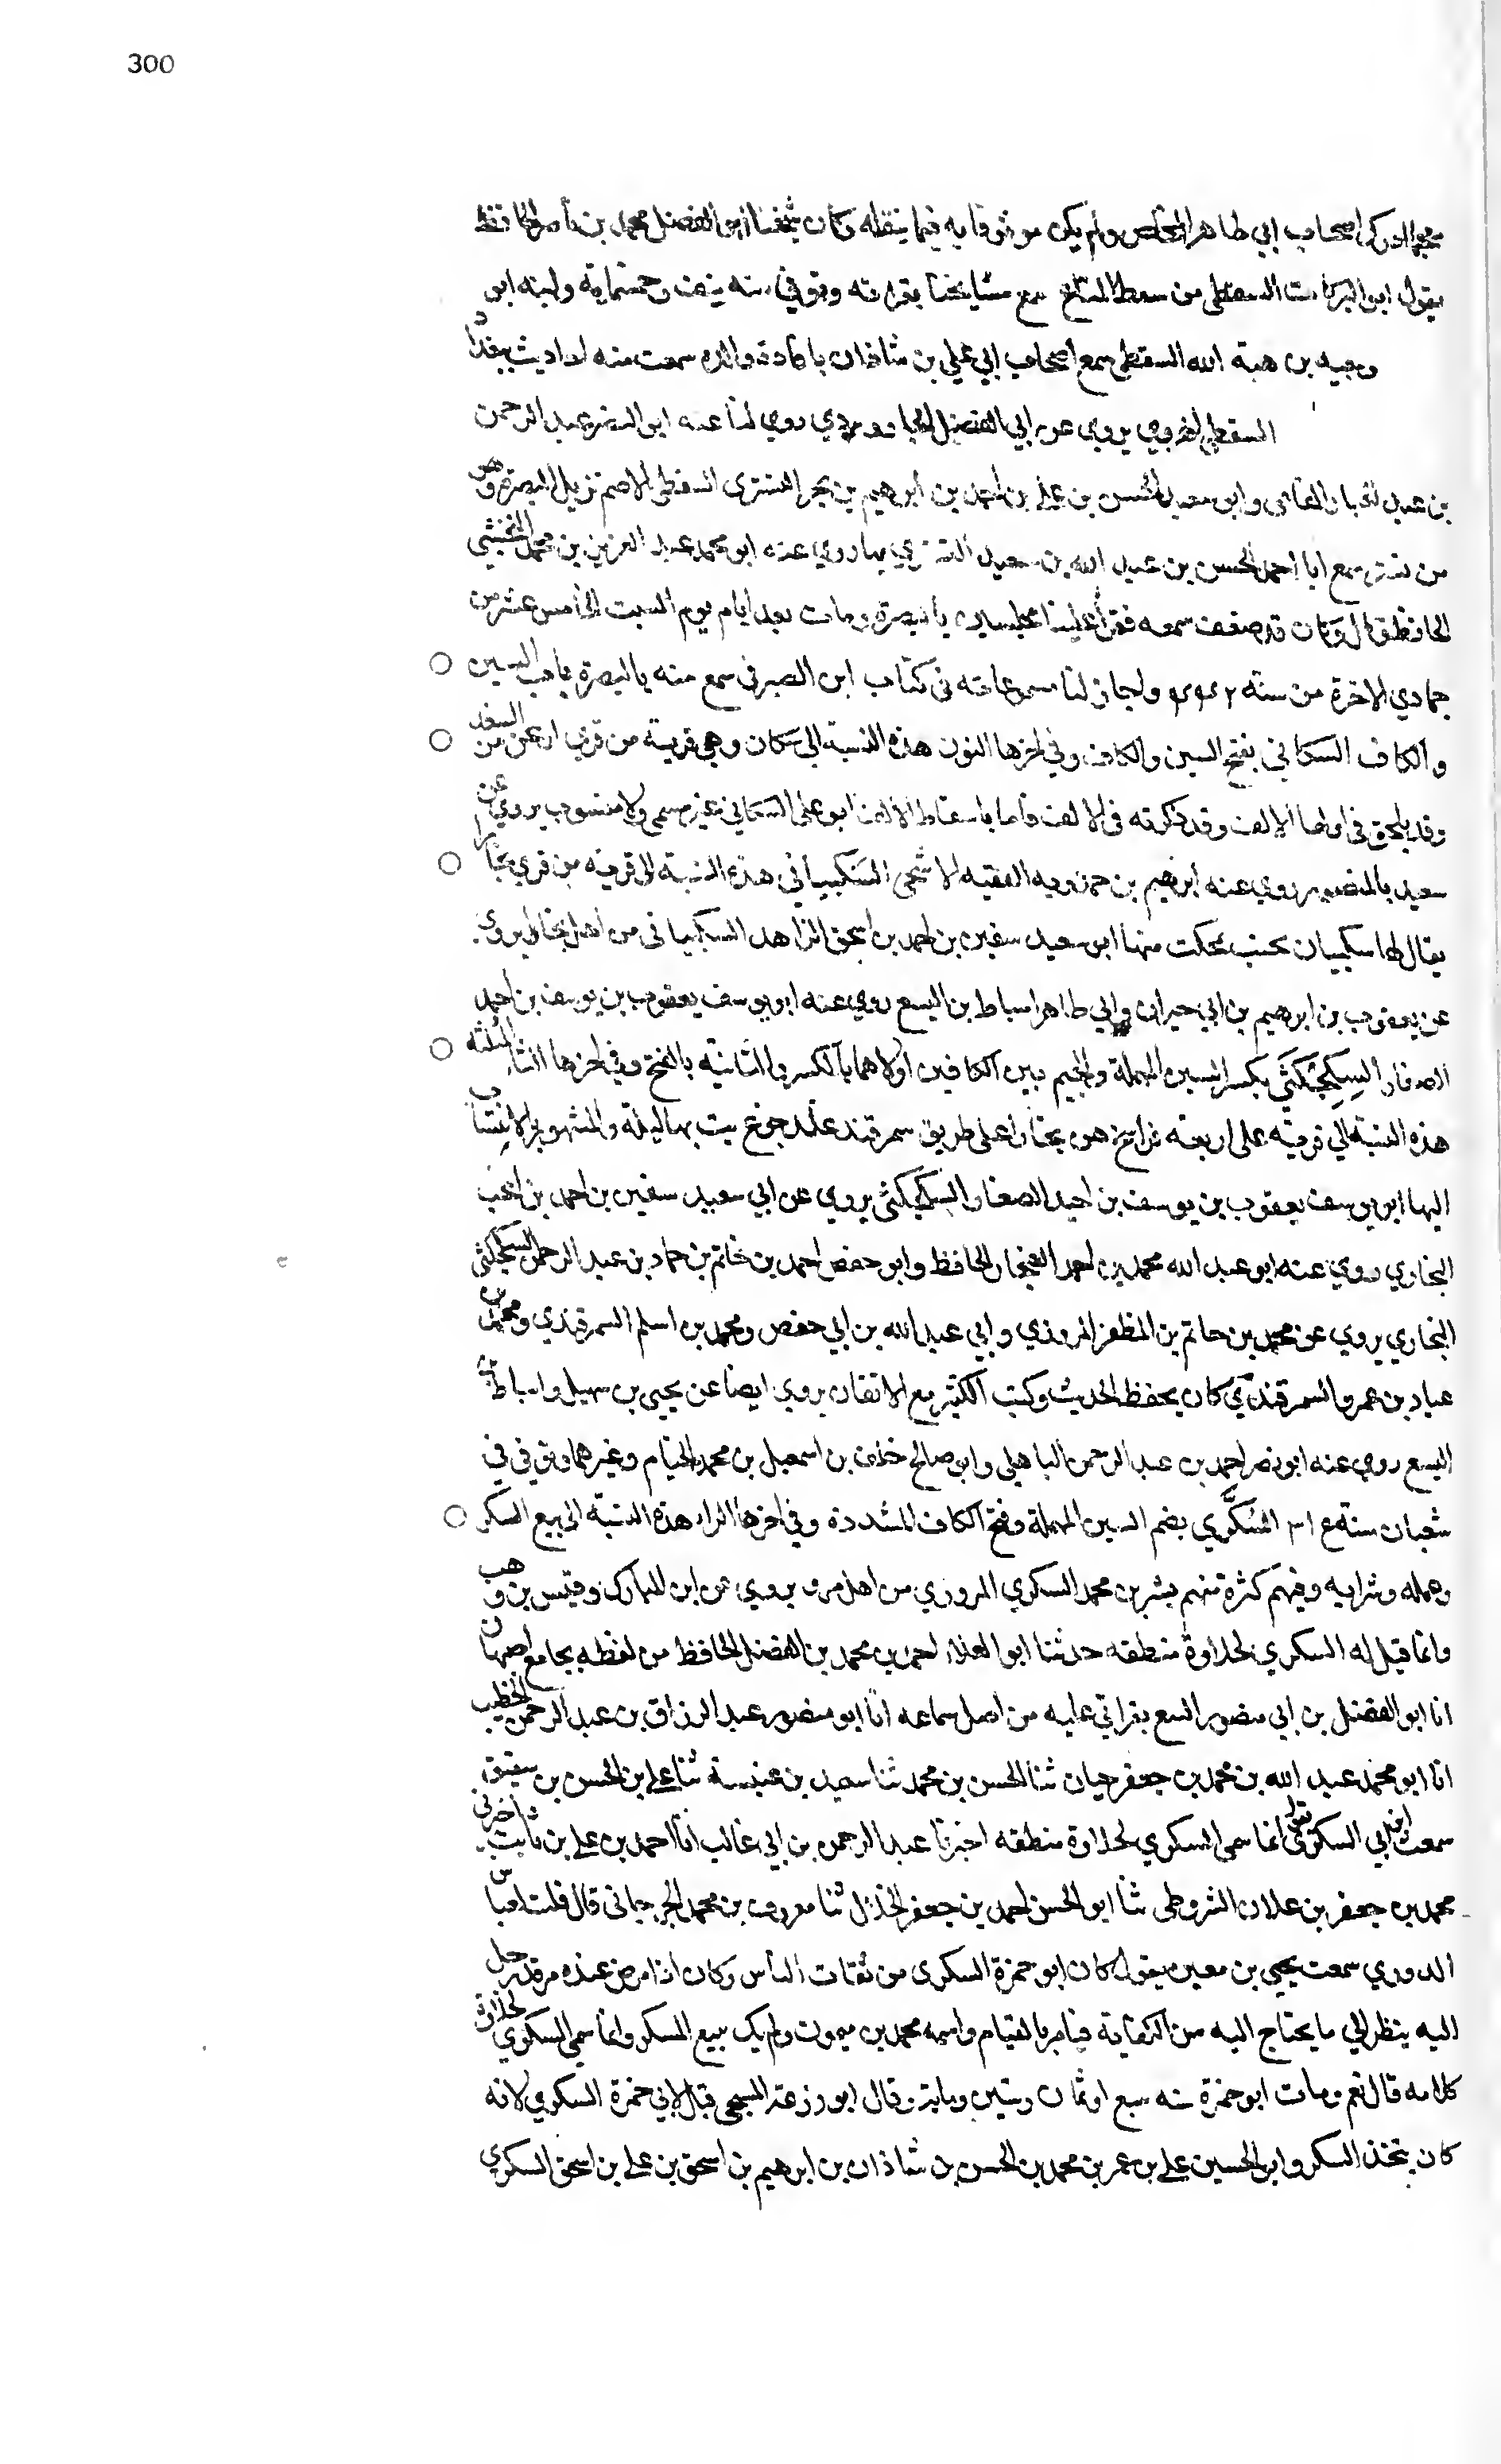 300
اصحاب ابي طاهر المخلص ولم يكن موثوقا به فيما ينقله وكان شيخنا ابو الفضل محمد بن ناصر الحافظ
يقول ابو البركات السقطي من سقط المتاع سمع مشايخنا بقراءته وتوفي سنه نيف وخمسماية وابنه ابو
وجيه بن هبة الله السقطي سمع اصحاب ابي علي بن شاذان بافادة والده سمعت منه احاديث ببغداد
السقطي يروي عن ابي الفضل الجارودي روي لنا عنه ابو النضر عبد الرحمن
بن عبد الجبار الفامي وابو سعيد الحسن بن علي بن احمد بن ابرهيم بن بحر التستري السقطي الاصم نزيل البصرة وهو
من تستر سمع ابا احمد الحسن بن عبد الله بن سعيد روي عنه ابو محمد عبد العزيز بن محمد النخشبي
الحافظ قال وكان قد ضعف سمعه فقرأ علينا مجلسين بالبصرة ومات بعد ايام يوم السبت الخامس عشر من
جمادي الاخرة من سنة واجاز لنا مسموعاته في كتاب ابن الصيرفي سمع منه بالبصرة باب السين
والكاف السكاني بفتح السين والكاف وفي اخرها النون هذه النسبة الي سكان وهي قرية من قري من السغد
وقد يلحق في اولها الالف وقد ذكرته في الالف فاما باسقاط الالف ابو علي السكاني غير مسمي ولا منسوب يروي عن
سعيد بن المنصور روي عنه ابرهيم بن حمدويه الفقيه الاشتيخني السكبياني هذه النسبة الي قرية من قري بخارا
يقال لها سكبيان بجنب بمجكت منها ابو سعيد سفين بن احمد بن اسحق الزاهد السكبياني من اهل بخارا يروي
عن يعقوب بن ابرهيم بن ابي حيران وابي طاهر اسباط بن اليسع روي عنه ابو يوسف يعقوب بن يوسف بن احيد
الصفار السكجكثي بكسر السين المهملة والجيم بين الكافين اولاهما بالكسر والثانية بالفتح وفي اخرها الثاء المثلثه
هذه النسبة الي قرية علي اربعة فراسخ من بخارا علي طريق سمرقند عند جرغ بت بها ليلة والمشهور بالانتساب
اليها ابو يوسف يعقوب بن يوسف بن احيد الصفار السكجكثي يروي عن ابي سعيد سفين بن احمد بن اسحق
البخاري روي عنه ابو عبد الله محمد بن احمد الغنجار الحافظ وابو حفص احمد بن حاتم بن حماد بن عبد الرحمن السكجكثي
البخاري يروي عن محمد بن حاتم بن المظفر المروزي وابي عبد الله بن ابي حفص ومحمد بن اسلم السمرقندي ومحمد بن
عباد بن عمرو السمرقندي كان يحفظ الحديث وكتب الكثير مع الاتقان يروي ايضا عن يحيى بن سهيل واسباط بن
اليسع روي عنه ابو نصر احمد بن عبد الرحمن الباهلي وابو صالح خلف بن اسمعيل بن محمد الخيام وغيرهما وتوفي في
شعبان سنة ٣١٤ السُكَّري بضم السين المهملة وفتح الكاف المشددة وفي اخرها الراء هذه النسبة الي بيع السكر
وعمله وشرايه وفيهم كثرة منهم بشر بن محمد السكري المروزي من اهل مرو يروي عن ابن المبارك وقيس بن وهب
وانما قيل له السكري لحلاوة منطقه حدثنا ابو العلاء احمد بن محمد بن الفضل الحافظ من لفظه بجامع اصبهان
انا ابو الفضل بن ابي منصور السبع بقراتي عليه من اصل سماعه انا ابو منصور عبد الرزاق بن عبد الرحمن الخطيب
انا ابو محمد عبد الله بن محمد بن جعفر حيان ثنا الحسن بن محمد ثنا سعيد بن عنبسة ثنا علي بن الحسن بن شقيق
سمعت ابن ابي السكري يقول انما سمى السكري لحلاوة منطقه اخبرنا عبد الرحمن بن ابي غالب انا احمد بن علي بن ثابت اخبرني
محمد بن جعفر بن علان الشروطي ثنا ابو الحسن احمد بن جعفر الخلال ثنا معروف بن محمد الجرجاني قال قلت لعباس
الدوري سمعت يحيي بن معين يقول كان ابو حمزة السكري من ثقات الناس وكان اذا مرض عنده من قد رحل
اليه ينظر الي ما يحتاج اليه من الكفاية فيامر بالقيام واسمه محمد بن ميمون ولم يك يبيع السكر وانما سمي السكري لحلاوة
كلامه قال نعم ومات ابو حمزة سنه سبع او ثمان وستين وماية وقال ابو زرعة السبحي قيل لابي حمزة السكري لانه
كان يتخذ السكر وابو الحسين علي بن عمر بن محمد بن الحسن بن شاذان بن ابرهيم بن اسحق بن علي بن اسحق السكري